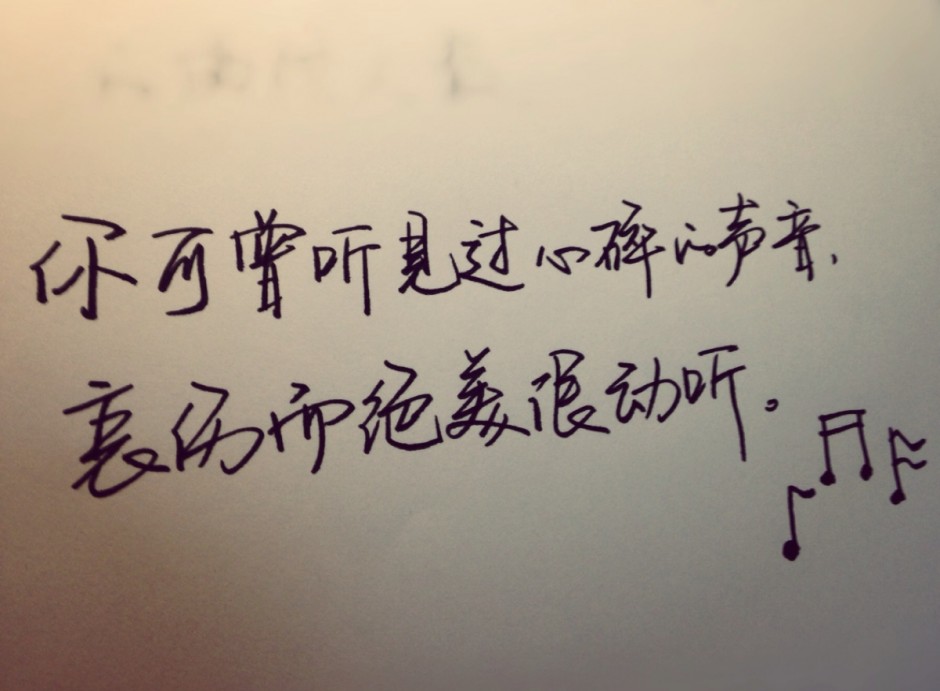 你可曾听见过心碎的声音，
哀伤而绝美很动听。